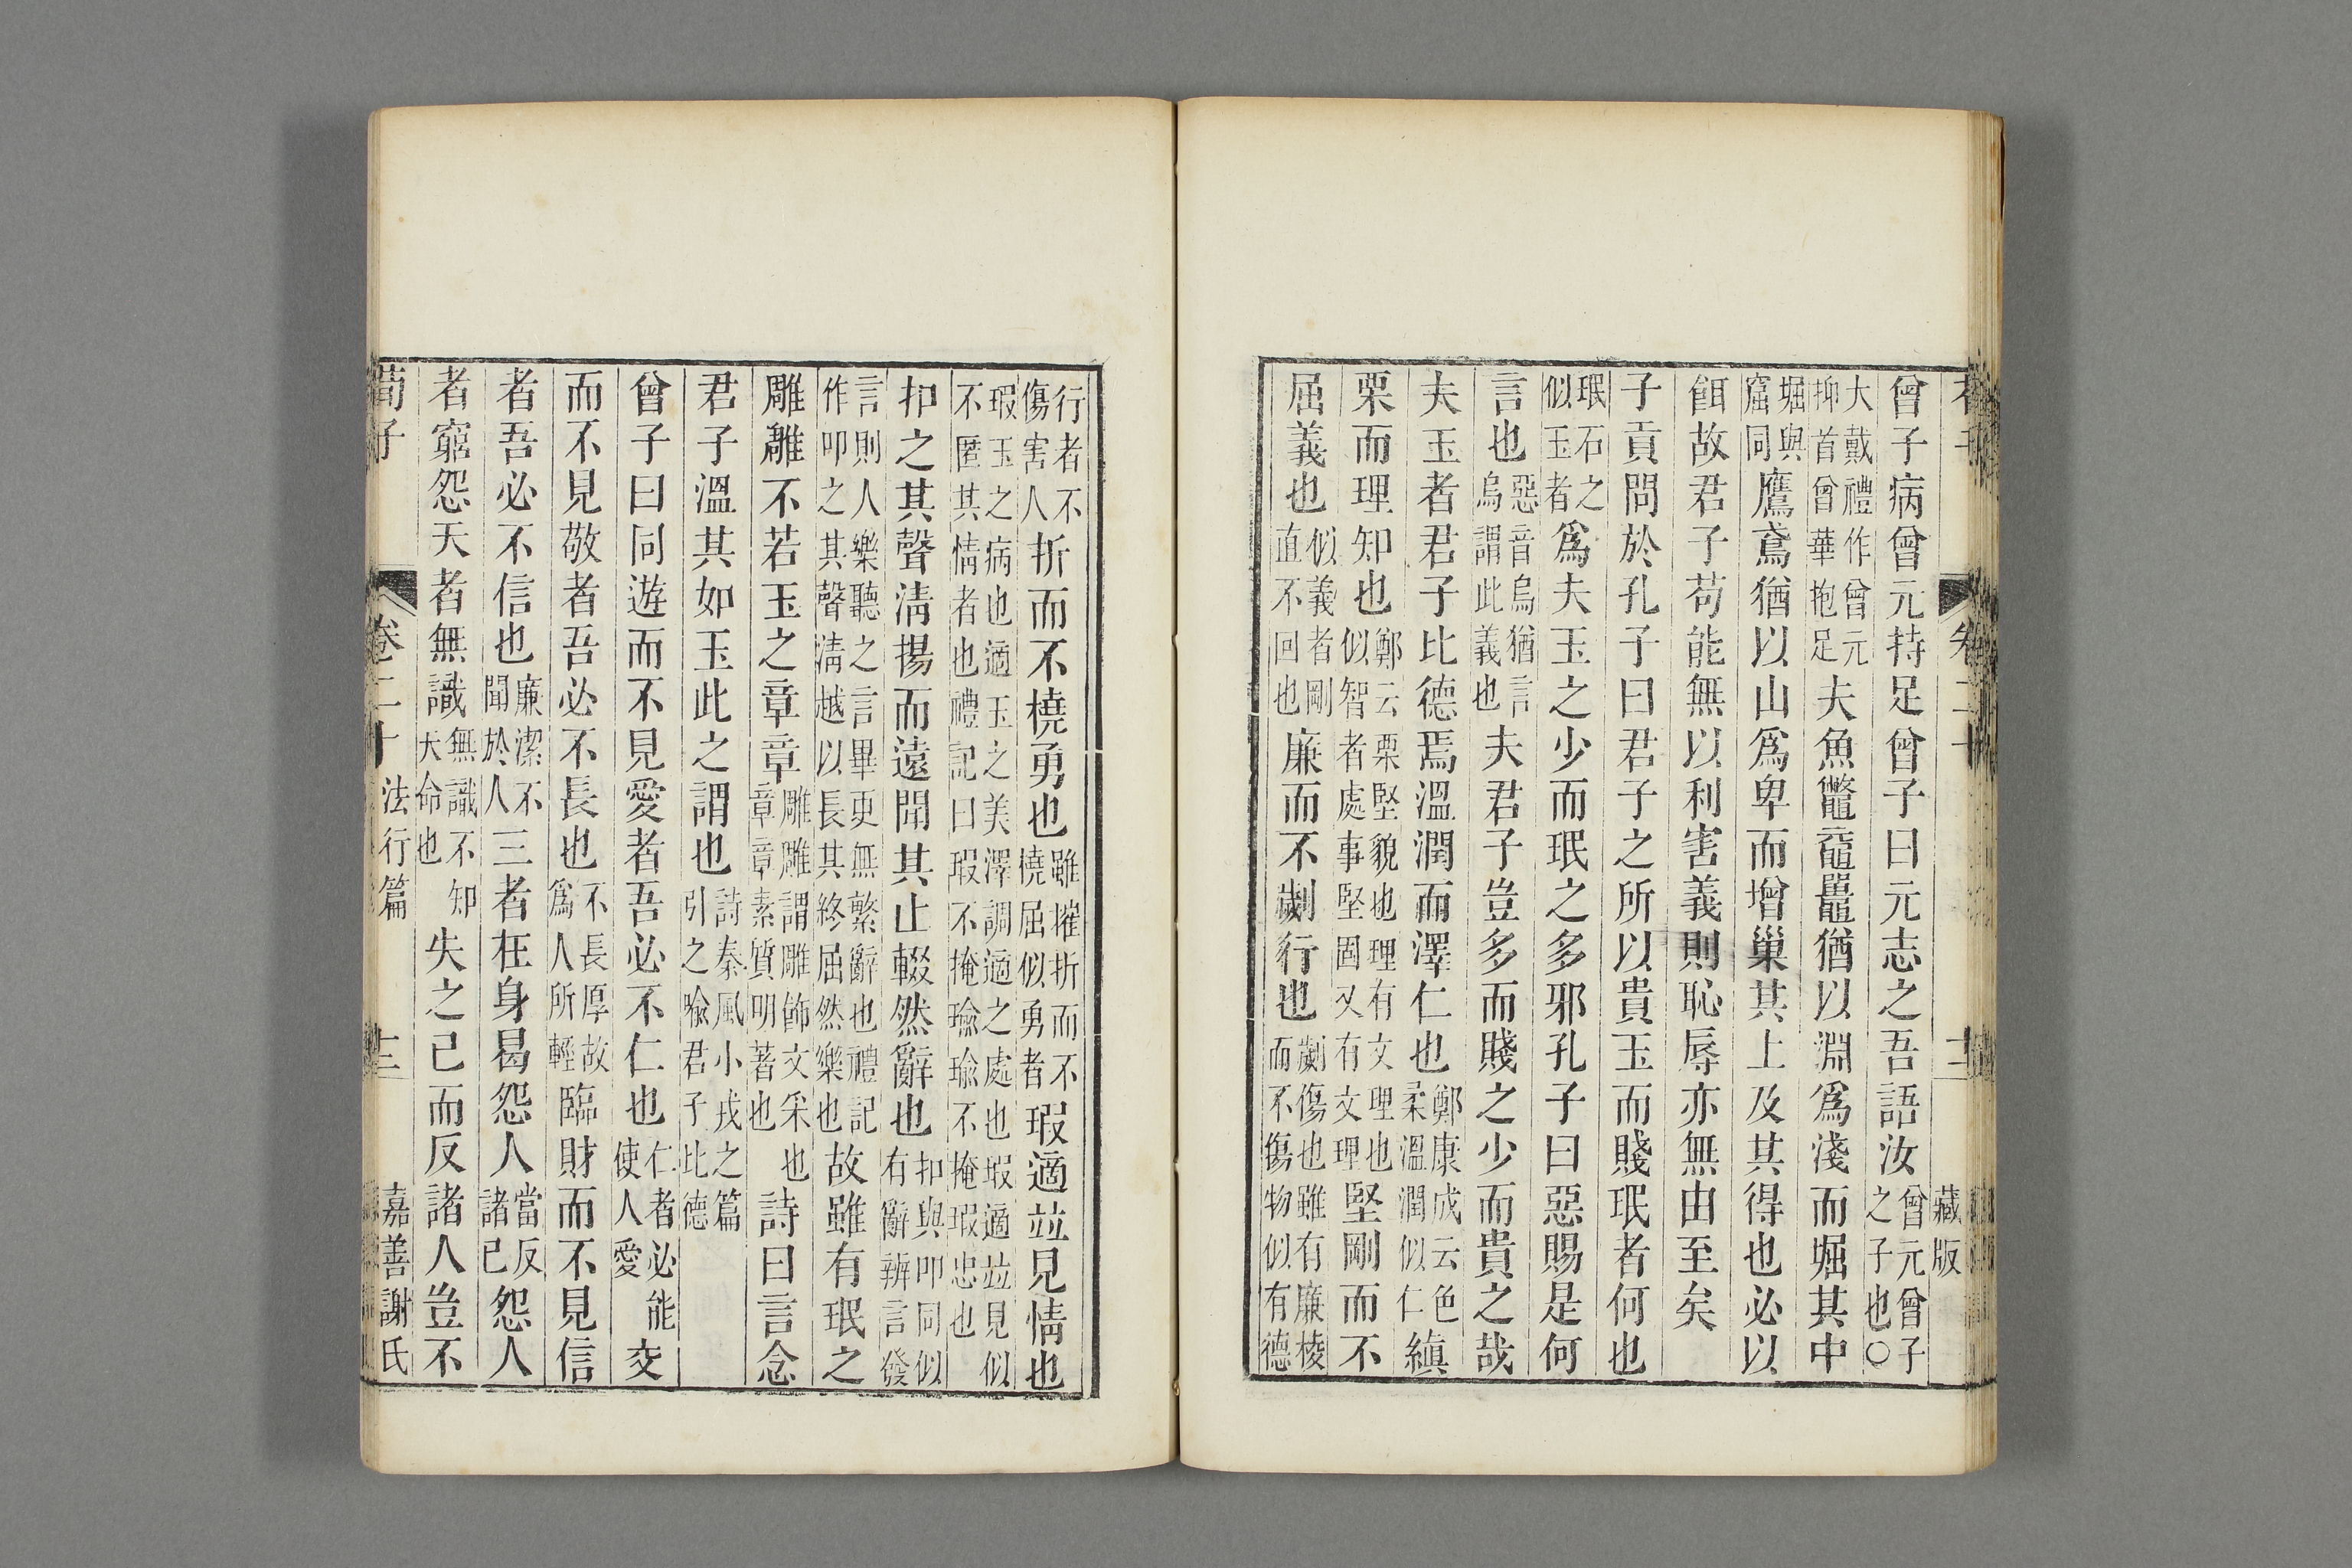 曾子病曾元持足曾子曰元志之吾語汝曾元曾子之子也〇
大戴禮作曾元抑首曾華抱足夫魚鼈黿鼉猶以淵爲淺而堀其中
堀與窟同鷹鳶猶以山爲卑而增巢其上及其得也必以
餌故君子苟能無以利害義則恥辱亦無由至矣
子貢問於孔子曰君子之所以貴玉而賤珉者何也
珉石之似玉者爲夫玉之少而珉之多邪孔子曰惡賜是何
言也惡音烏猶言烏謂此義也夫君子豈多而賤之少而貴之哉
夫玉者君子比德焉溫潤而澤仁也鄭康成云色柔溫潤似仁縝
栗而理知也鄭云栗堅貌也理有文理也似智者處事堅固又有文理堅剛而不
屈義也似義者剛直不回也廉而不劌行也劌傷也雖有廉棱而不傷物似有德
藏版
行者不傷害人折而不橈勇也雖摧折而不橈屈似勇者瑕適竝見情也
瑕玉之病也適玉之美澤調適之處也瑕適竝見似不匿其情者也禮記曰瑕不掩瑜瑜不掩瑕忠也
扣之其聲淸揚而遠聞其止輟然辭也扣與叩同似有辭辨言發
言則人樂聽之言畢更無繁辭也禮記作叩之其聲淸越以長其終屈然樂也故雖有珉之
雕雕不若玉之章章雕雕謂雕飾文采也章章素質明著也詩曰言念
君子溫其如玉此之謂也詩秦風小戎之篇引之喩君子比德
曾子曰同遊而不見愛者吾必不仁也仁者必能使人愛交
而不見敬者吾必不長也不長厚故爲人所輕臨財而不見信
者吾必不信也廉潔不聞於人三者在身曷怨人當反諸己怨人
者窮怨天者無識無識不知天命也失之己而反諸人豈不
荀子 卷二十 法行篇 十三 嘉善謝氏